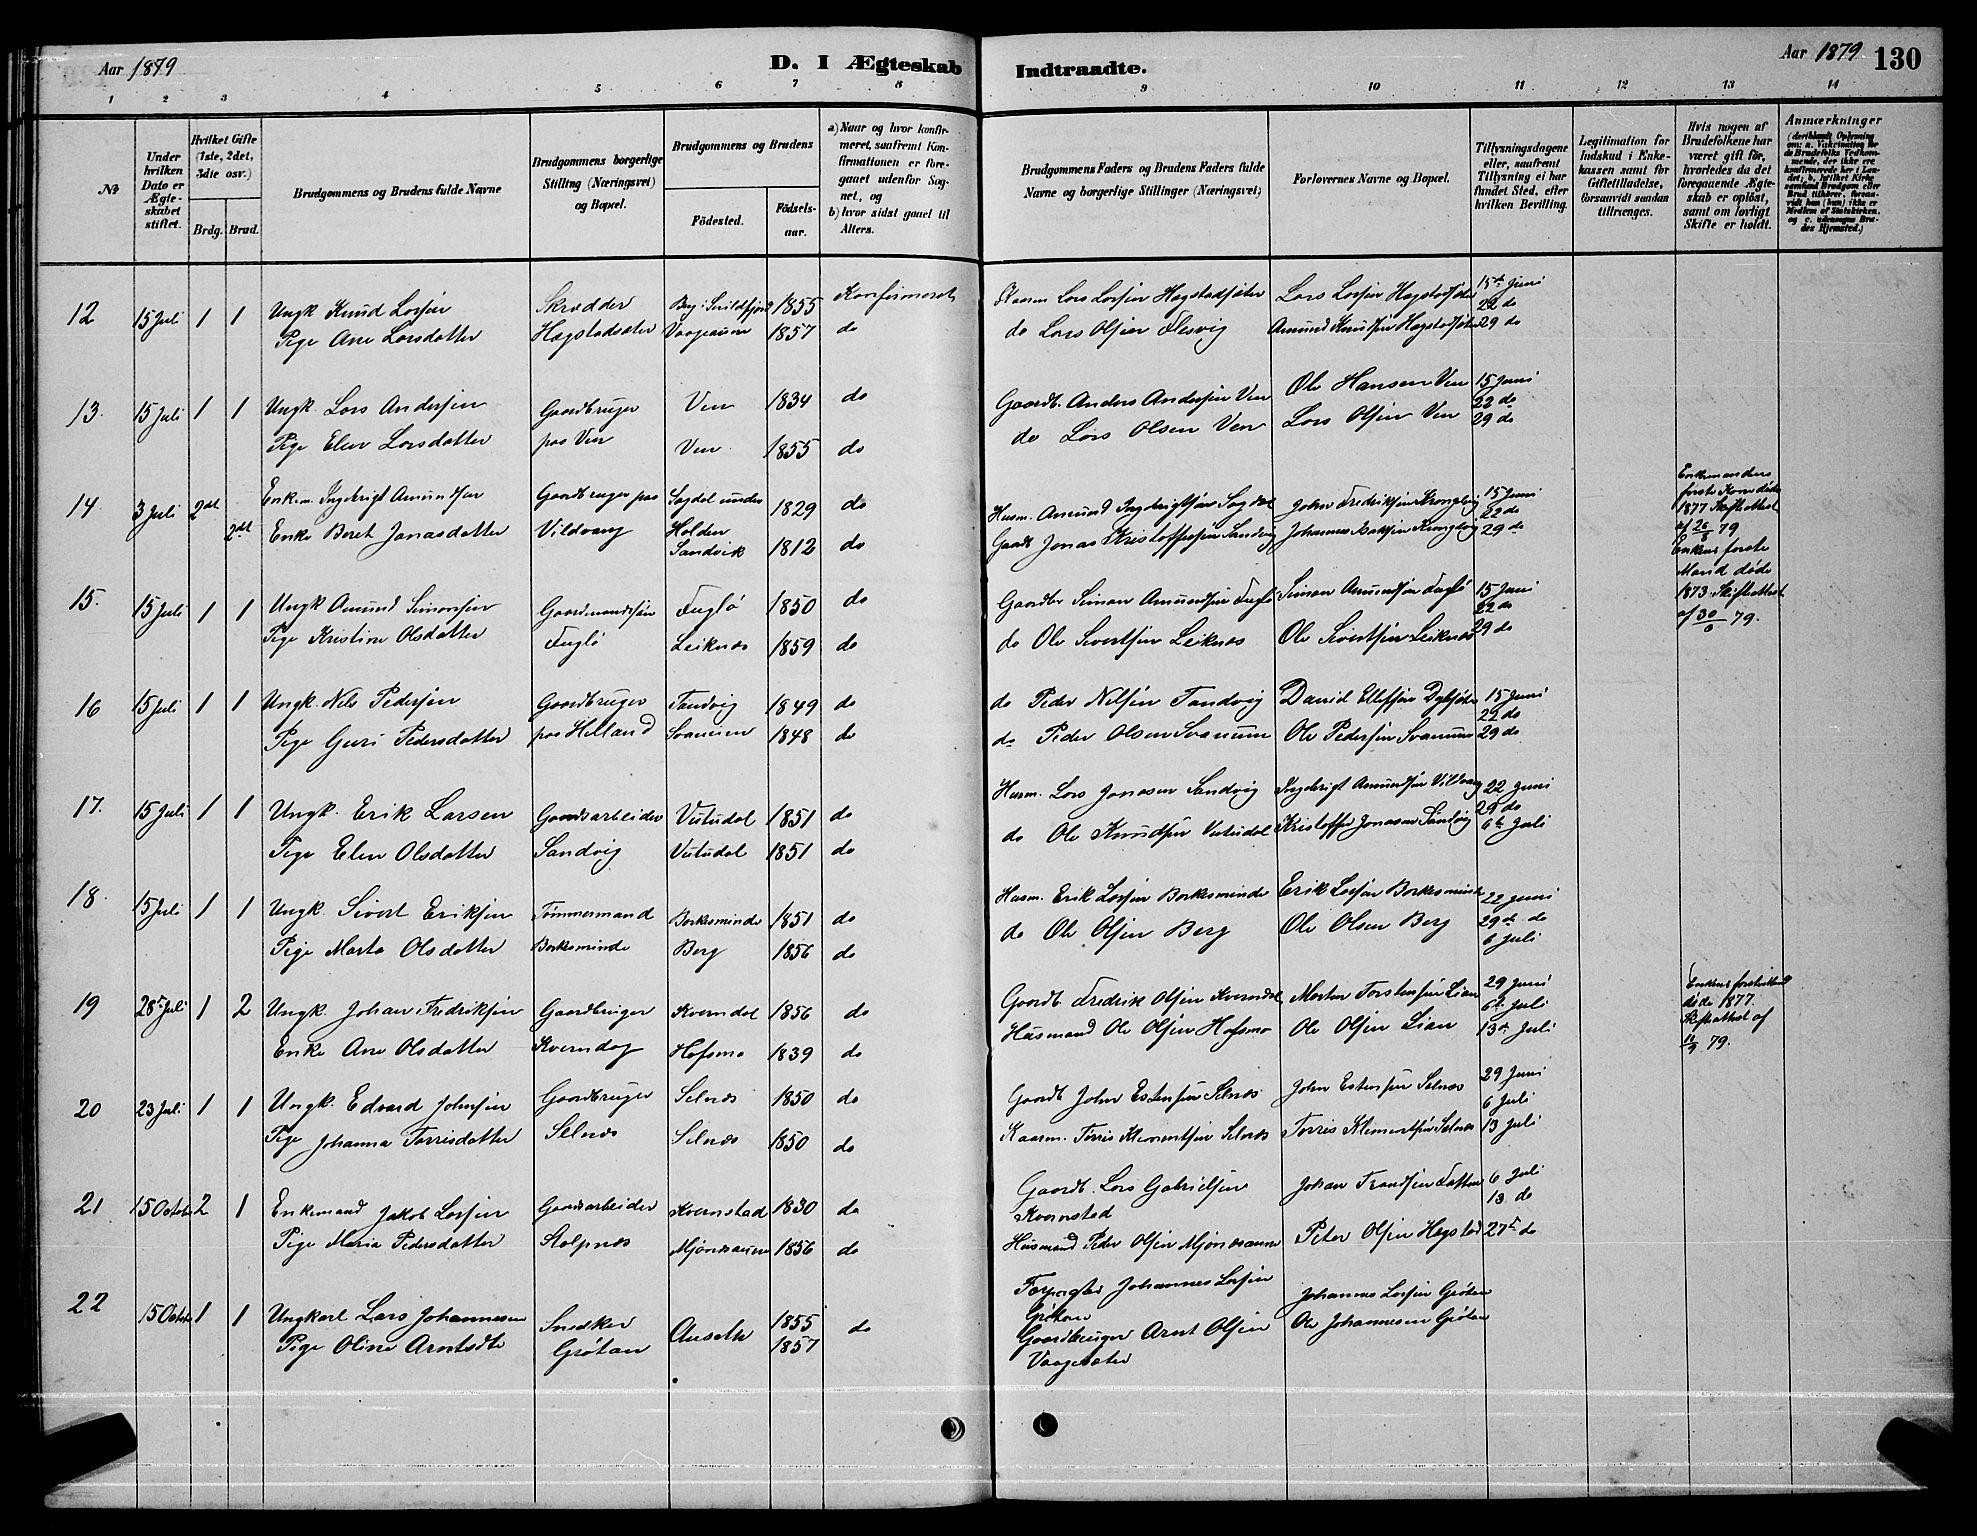 Aar 1879
D. I Ægteskab Indtraadte.
Aar 1879 130
1 2 3 4 5 6 7 8 9 10 11 12 13 14
№
Under hvilken Dato er Ægteskabet stiftet.
Hvilket Gifte (1ste, 2det, 3die osv.)
Brdg. Brud.
Brudgommens og Brudens fulde Navne
Brudgommens borgerlige Stilling (Næringsvei) og Bopæl.
Brudgommens og Brudens
Födested.
Födselsaar.
a) Naar og hvor konfirmeret, saafremt Konfirmationen er foregaaet udenfor Sognet, og
b) hvor sidst gaaet til Alters.
Brudgommens Faders og Brudens Faders fulde Navne og borgerlige Stillinger (Næringsvei)
Forlovernes Navne og Bopæl.
Tillysningsdagene eller, saafremt Tillysning ei har fundet Sted, efter hvilken Bevilling.
Legitimation for Indskud i Enkekassen samt for Giftetilladelse, forsaavidt saadan tiltrænges.
Hvis nogen af Brudefolkene har været gift för, hvorledes da det foregaaende Ægteskab er oplöst, samt om lovligt Skifte er holdt.
Anmærkninger
12 15 Juli 1 1 Ungk Knud Larsen Skrædder 1855 Konfirmeret Lars Larsen Hagstadsæter Lars Larsen Hagstadsæter 15de Juni
22 do
Pige Ane Larsdatter Hagstadsæter Vaagaunn 1857 do do Lars Olsen Amund Knudsen Hagstadsæter 29 do
13. 15 Juli 1 1 Ungk. Lars Andersen Gaardbruger Ven 1834 do Gaardb. Anders Andersen Ven Ole Hansen Ven 15 Juni
22 do
Pige Elen Larsdatter paa Ven Ven 1855 do do Lars Olsen Ven Lars Olsen Ven 29 do
14 3 Juli 2det Enkem. Ingebrigt Amundsen Gaardbruger paa Sagdal under 1829 do Husm. Amund Ingebrigtsen Sagdal John Fredriksen 15 Juni
22 do
2det Enke Beret Jonasdatter Vildvang Holden Sandvik 1812 do Gaardb Jonas Kristoffersen Sandvig Johannes 29 do
Enkemandens første Kone døde 1877 Skifteattest af 79
Enkens første Mand døde 1873. Skifteattest af 30/6 79.
15. 15 Juli 1 1 Ungk Amund Simonsen Gaardmandssøn Fuglö 1850 do Gaardbr Simon Amundsen Fuglö Simon Amundsen Fuglö 15 Juni
22 do
Pige Kristine Olsdatter Fuglö Leiknæs 1859 do do Ole Sivertsen Leiknæs Ole Sivertsen Leiknæs 29 do
16 15 Juli 1 1 Ungk. Nils Pedersen Gaardbruger Tandvig 1849 do do Peder Nilsen Tandvig David Ellefsen 15 Juni
22 do
Pige Guri Pedersdatter paa Helland Svanum 1848 do do Peder Olsen Svanum Ole Pedersen Svanum 29 do
17. 15 Juli 1 1 Ungk. Erik Larsen Gaardsarbeider Vutudal 1851 do Husm. Lars Jonasen Sandvig Ingebrigt Amundsen Vildvang 22 Juni
29 do
Pige Elen Olsdatter Sandvig Vutudal 1851 do do Ole Knudsen Vutudal Kristoffer Jonasen Sandvig 6te Juli
18. 15 Juli 1 1 Ungk. Sivert Eriksen Tömmermand Borkesminde 1851 do Husm. Erik Larsen Borkesminde Erik Larsen Borkesminde 22 Juni
29de do
Pige Marta Olsdatter Borkesminde Berg 1856 do do Ole Olsen Berg Ole Olsen Berg 6 Juli
19 28 Juli 1 2 Ungk. Johan Fredriksen Gaardbruger Kverndal 1856 do Gaardb. Fredrik Olsen Kverndal Morten Torstensen Lian 29 Juni
6te Juli
Enke Ane Olsdatter Hofsmo 1839 do Husmand Ole Olsen Hofsmo Ole Olsen Lian 13de Juli
Enkens første døde 1877. Skifteattest af 79.
20 23 Juli 1 1 Ungk. Edvard Johnsen Gaardbruger Selnæs 1850 do Gaardb John Estensen Selnæs John Estensen Selnæs 29 Juni
6 Juli
Pige Johanna Torrisdatter Selnæs Selnæs 1850 do Kaarm. Torris Klementsen Selnæs Torris Klementsen Selnæs 13 Juli
21 15 Octob 2 1 Enkemand Jakob Larsen Gaardsarbeider Kvernstad 1830 do Gaardb. Lars Gabrielsen Kvernstad Johan 6 Juli
13 do
Pige Maria Pedersdatter Stolpnæs Mjönesaunn 1856 do Husmand Peder Olsen Mjönesaunn Peter Olsen Hegstad 27 do
22 15 Octob 1 1 Ungkarl Lars Johannesen Snedker Auseth 1855 do Forpagter Johannes Larsen Grötan Johannes Larsen Grötan
Pige Oline Arntsdtr Grötan 1857 Gaardbruger Arnt Olsen Vaagesæter Ole Johannesen Grötan